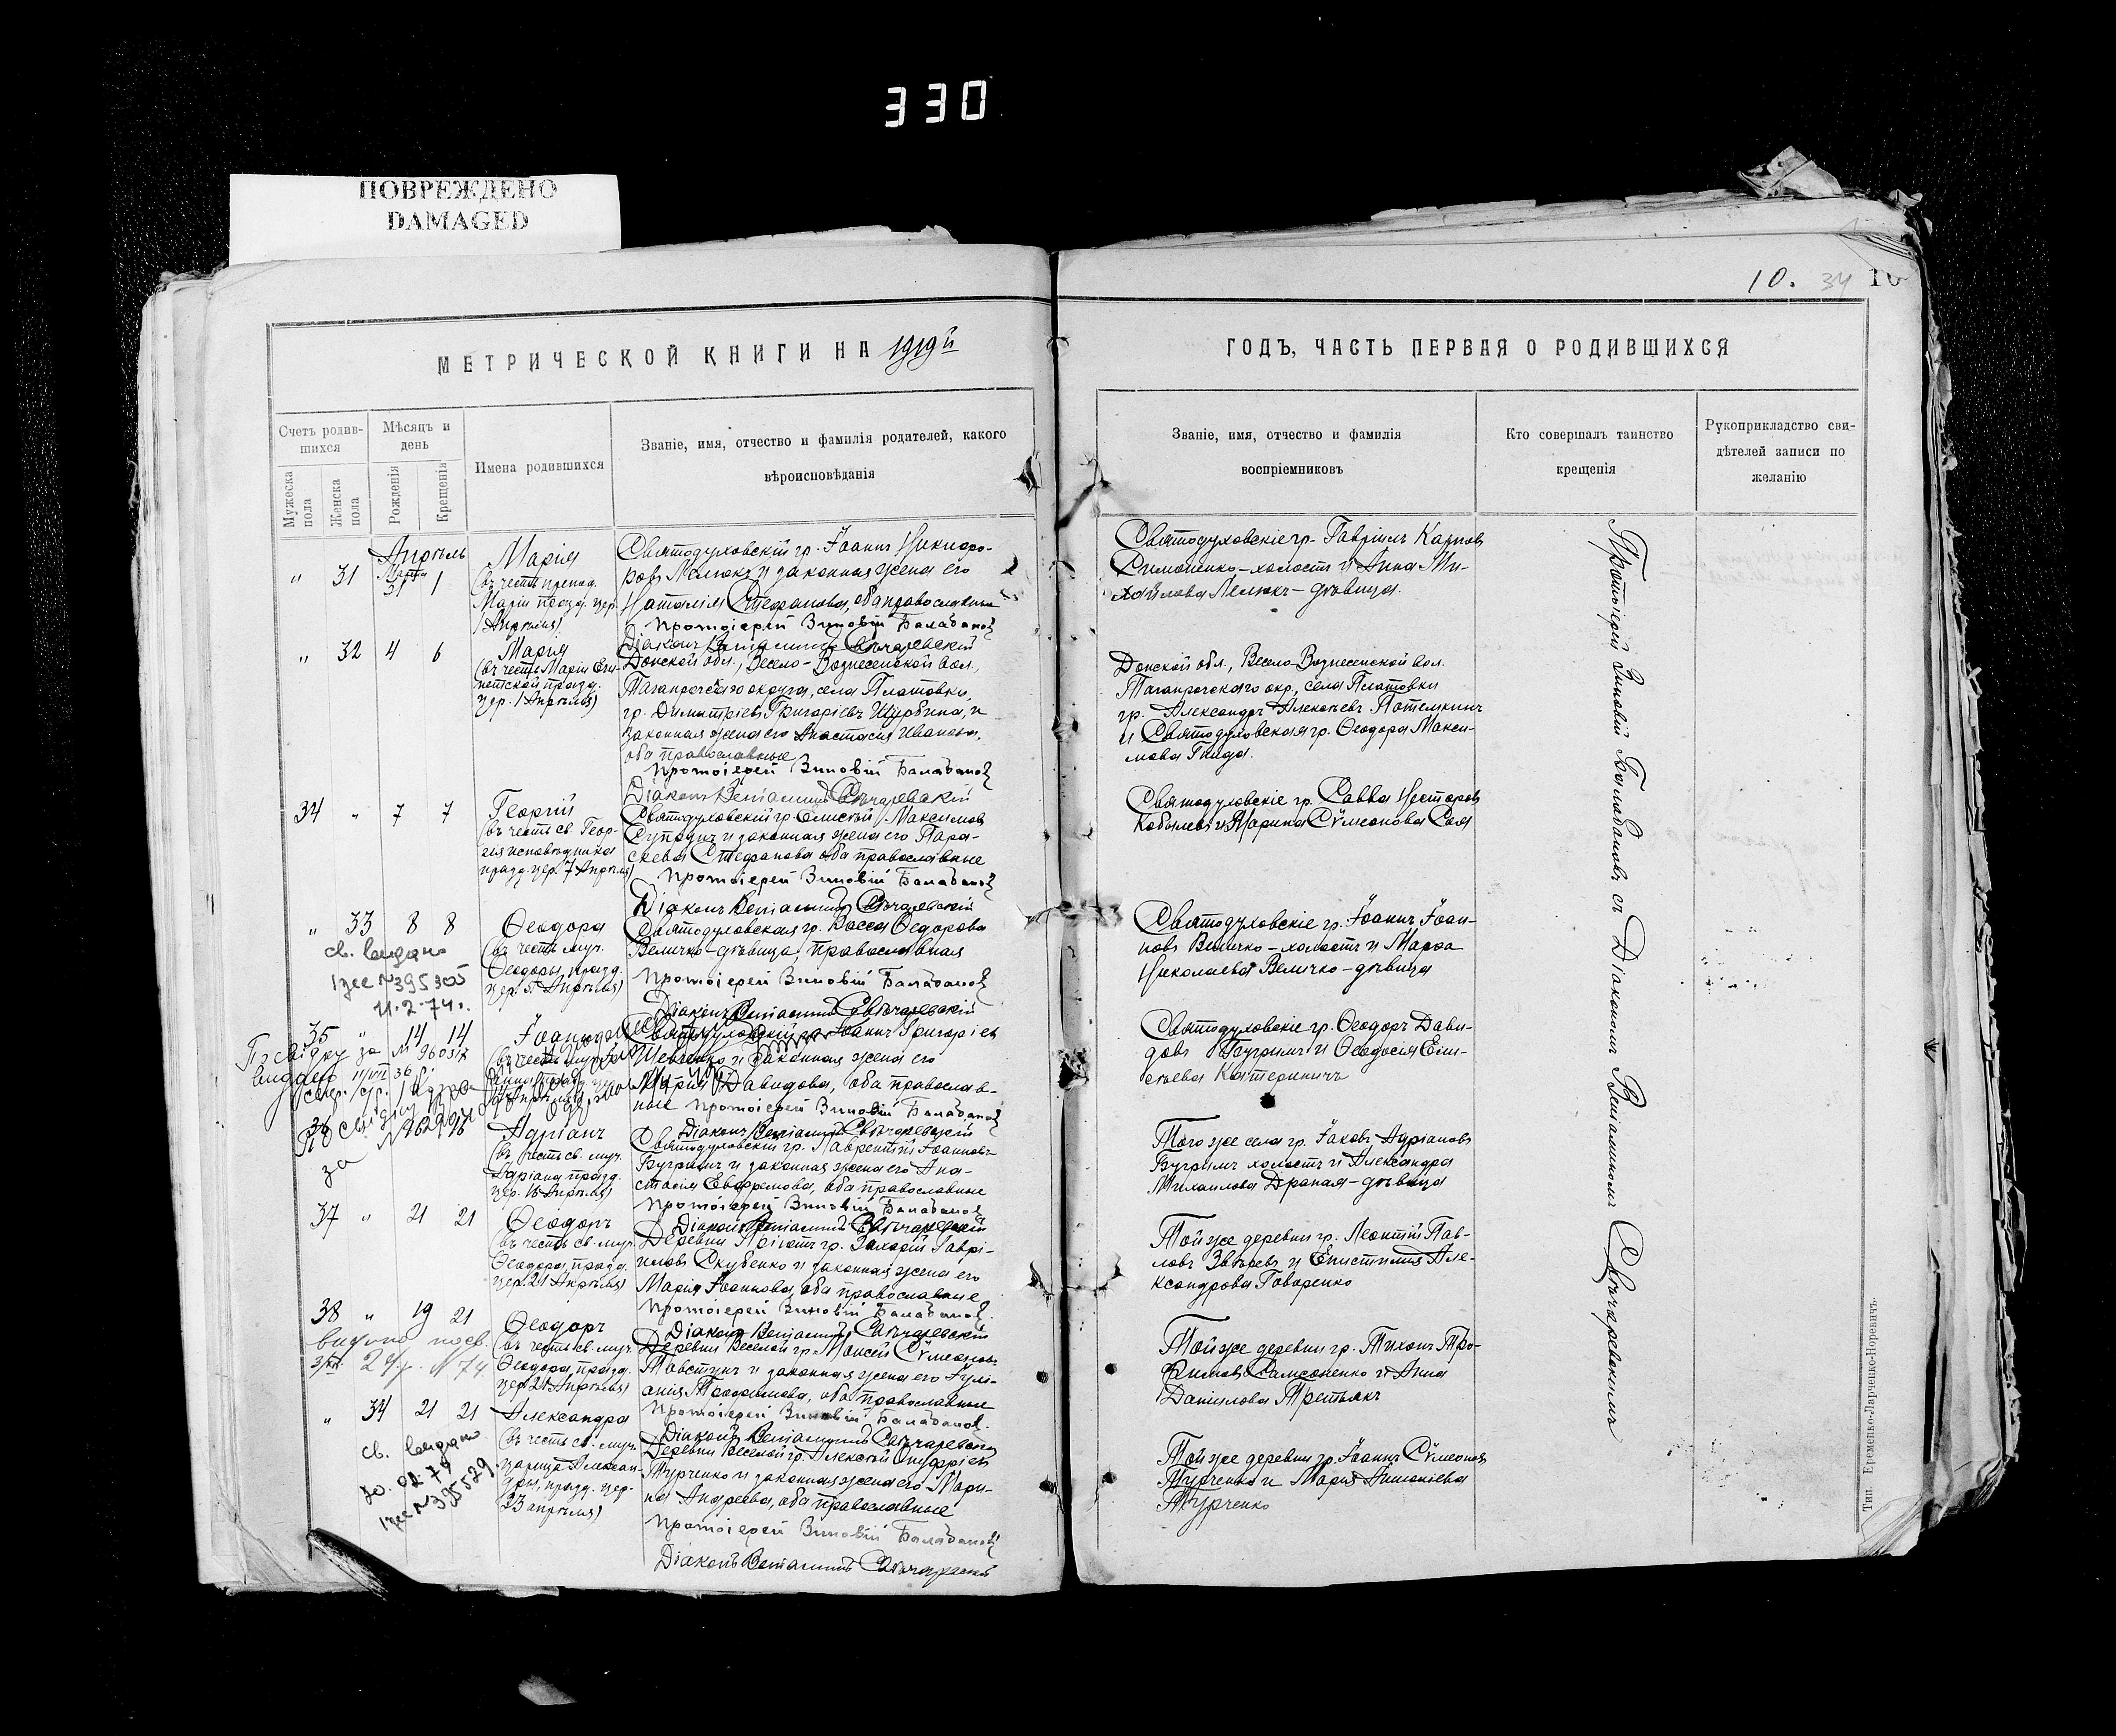 330
ПОВРЕЖДЕНО
DAMAGED
10. 34 10
МЕТРИЧЕСКОЙ КНИГИ НА 1919й
ГОДЪ, ЧАСТЬ ПЕРВАЯ О РОДИВШИХСЯ
Счетъ родив-
шихся
Мужеска пола
Женска пола
Мѣсяцъ и
день
Рожденія
Крещенія
Имена родившихся
Званіе, имя, отчество и фамилія родителей, какого
вѣроисповѣданія
Званіе, имя, отчество и фамилія
воспріемниковъ
Кто совершалъ таинство
крещенія
Рукоприкладство сви-
дѣтелей записи по
желанію
Апрѣль
" 31 Марта 31 1
Марія
(въ честь препод.
Маріи празд. цер.
1 Апрѣля)
Святодуховскій гр. Іоаннъ Никифо-
ровъ Лелюкъ и законная жена его
Наталія Стефанова, оба православные
Протоіерей Зиновій Балабановъ
Діаконъ Веніаминъ Свѣчаревскій
Святодуховскіе гр. Гавріилъ Карповъ
Симоненко - холостъ и Анна Ми-
хайлова Лелюкъ - дѣвица.
" 32 4 6
Марія
(въ честь Маріи Еги-
петской празд.
цер. 1 Апрѣля)
Донской обл., Весело-Вознесенской вол.,
Таганрогскаго округа, села Платовки,
гр. Димитрій Григоріевъ Щурбина, и
законная жена его Анастасія Иванова,
оба православные
Протоіерей Зиновій Балабановъ
Діаконъ Веніаминъ Свѣчаревскій
Донской обл., Весело-Вознесенской вол.
Таганрогскаго окр., села Платовки
гр. Александръ Алексѣевъ Потемкинъ
и Святодуховская гр. Ѳеодора Макси-
мова Гнида.
34 " 7 7
Георгій
(въ честь св. Геор-
гія исповѣдника
празд. цер. 7 Апрѣля)
Святодуховскій гр. Максимовъ
Супрунъ и законная жена его Пара-
скева Стефанова оба православные
Протоіерей Зиновій Балабановъ
Діаконъ Веніаминъ Свѣчаревскій
Святодуховскіе гр. Савва Несторовъ
Кобылевъ и Марина Сѵмеонова Сая
" 33 8 8
св. видано
11.2.74г.
Ѳеодора
(въ честь муч.
Ѳеодоры, празд.
цер. 5 Апрѣля)
Святодуховская гр. Васса Ѳедорова
Величко - дѣвица, православная
Протоіерей Зиновій Балабановъ
Діаконъ Веніаминъ Свѣчаревскій
Святодуховскіе гр. Іоаннъ Іоан-
новъ Величко - холостъ и Марѳа
Николаева Величко - дѣвица
35 " 14 14
Іоаннъ
Святодуховскій гр. Іоаннъ Григоріевъ
Шевченко и законная жена его
Марія Давидова, оба православ-
ные Протоіерей Зиновій Балабановъ
Діаконъ Веніаминъ Свѣчаревскій
Святодуховскіе гр. Ѳеодоръ Дави-
довъ Бугримъ и Ѳеодосія Ели-
сѣева Катериничъ
36
Адріанъ
(въ честь св. муч.
Адріана празд.
Святодуховскій гр. Лаврентій Іоанновъ
Бугримъ и законная жена его Ана-
стасія Евфремова, оба православные
Протоіерей Зиновій Балабановъ
Діаконъ Веніаминъ Свѣчаревскій
Того же села гр. Іаковъ Адріановъ
Бугримъ холостъ и Александра
Михаилова Драная - дѣвица
37 " 21 21
Ѳеодоръ
(въ честь св. муч.
Ѳеодора, празд.
цер. 21 Апрѣля)
Деревни Пріютъ гр. Захарій Гаврі-
иловъ Скубенко и законная жена его
Марія Іоаннова, оба православные
Протоіерей Зиновій Балабановъ
Діаконъ Веніаминъ Свѣчаревскій
Той же деревни гр. Леонтій Пав-
ловъ Звѣревъ и Епистимія Але-
ксандрова Говоренко
38 " 19 21
Ѳеодоръ
(въ честь св. муч.
Ѳеодора празд.
цер. 21 Апрѣля)
Деревни Веселой гр. Моисей Сѵмеоновъ
Товстунъ и законная жена его Іулі-
анія Трофимова, оба православные
Протоіерей Зиновій Балабановъ.
Діаконъ Веніаминъ Свѣчаревскій
Той же деревни гр. Тихонъ Тро-
фимовъ Самсоненко и Анна
Даніилова Третьякъ
" 34 21 21
св. видано
№ 395529
Александра
(въ честь св. муч.
царицы Алексан-
дры, празд. цер.
23 апрѣля)
Деревни Веселой гр. Алексѣй Онуфріевъ
Турченко и законная жена его Мари-
на Андреева, оба православные
Протоіерей Зиновій Балабановъ
Діаконъ Веніаминъ Свѣчаревскій
Той же деревни гр. Іоаннъ Сѵмеоновъ
Турченко и Марія Антоніева
Турченко
Протоіерей Зиновій Балабановъ съ Діакономъ Веніаминомъ Свѣчаревскимъ
Тип. Еременко-Ларченко-Норевичъ.